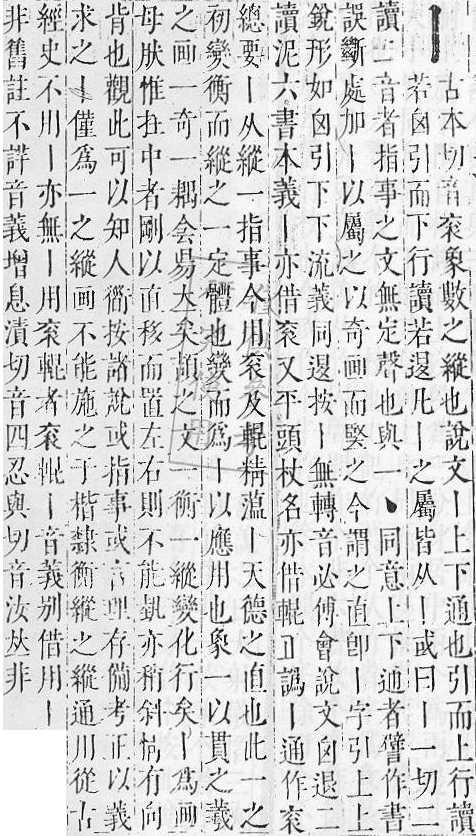 丨
古本切音衮象數之縱也說文丨上下通也引而上行讀
若囟引而下行讀若𨓤凡丨之屬皆从丨或曰丨一切二
讀二音者指事之文無定聲也與一丶同意上下通者譬作書
誤斷處加丨以屬之以奇画而竪之今謂之直卽丨字引上上
銳形如囟引下下流義同𨓤按丨無轉音必傅會說文囟退二
讀泥六書本義丨亦借衮又平頭杖名亦借輥𠀤譌丨通作衮
總要丨从縱一指事今用衮及輥精薀丨天德之直也此一之
初變衡而縱之一定體也變而爲丨以應用也象一以貫之義
之画一奇一耦会昜大矣頡之文一衡一縱變化行矣丨爲画
母肰惟在中者剛以直移而置左右則不能訊亦稍斜㑹有向
背也觀此可以知人衜按諸說或指事或言理存僃考正以義
求之丨僅爲一之縱画不能施之于楷隸衡縱之縱通用從古
經史不用丨亦無丨用衮輥者衮輥丨音義别借用丨
非舊註不詳音義增息漬切音四忍與切音汝𠀤非